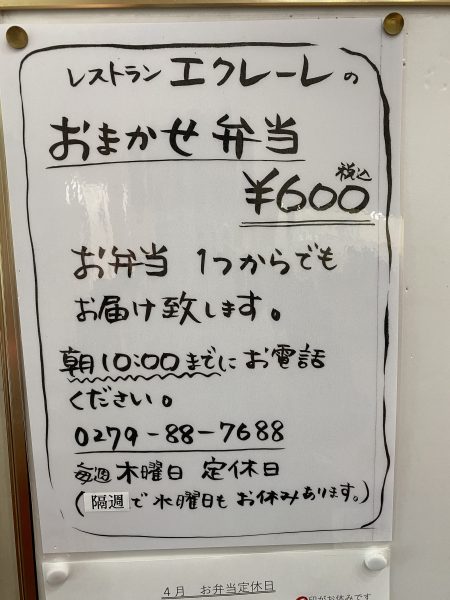 レストラン エクレーレの
おまかせ弁当
税込
¥600
お弁当 1つからでも
お届け致します。
朝10:00までにお電話
ください。
0279-88-7688
毎週 木曜日 定休日
(隔週で水曜日もお休みあります。)
4月 お弁当定休日
印がお休みです